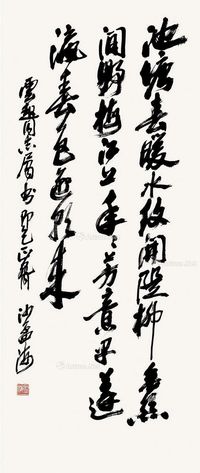 池塘春暖水紋開隄柳垂絲
間野梅江上年々芳意早蓬
瀛春色逐潮来
同志屬书即乞正 沙孟海